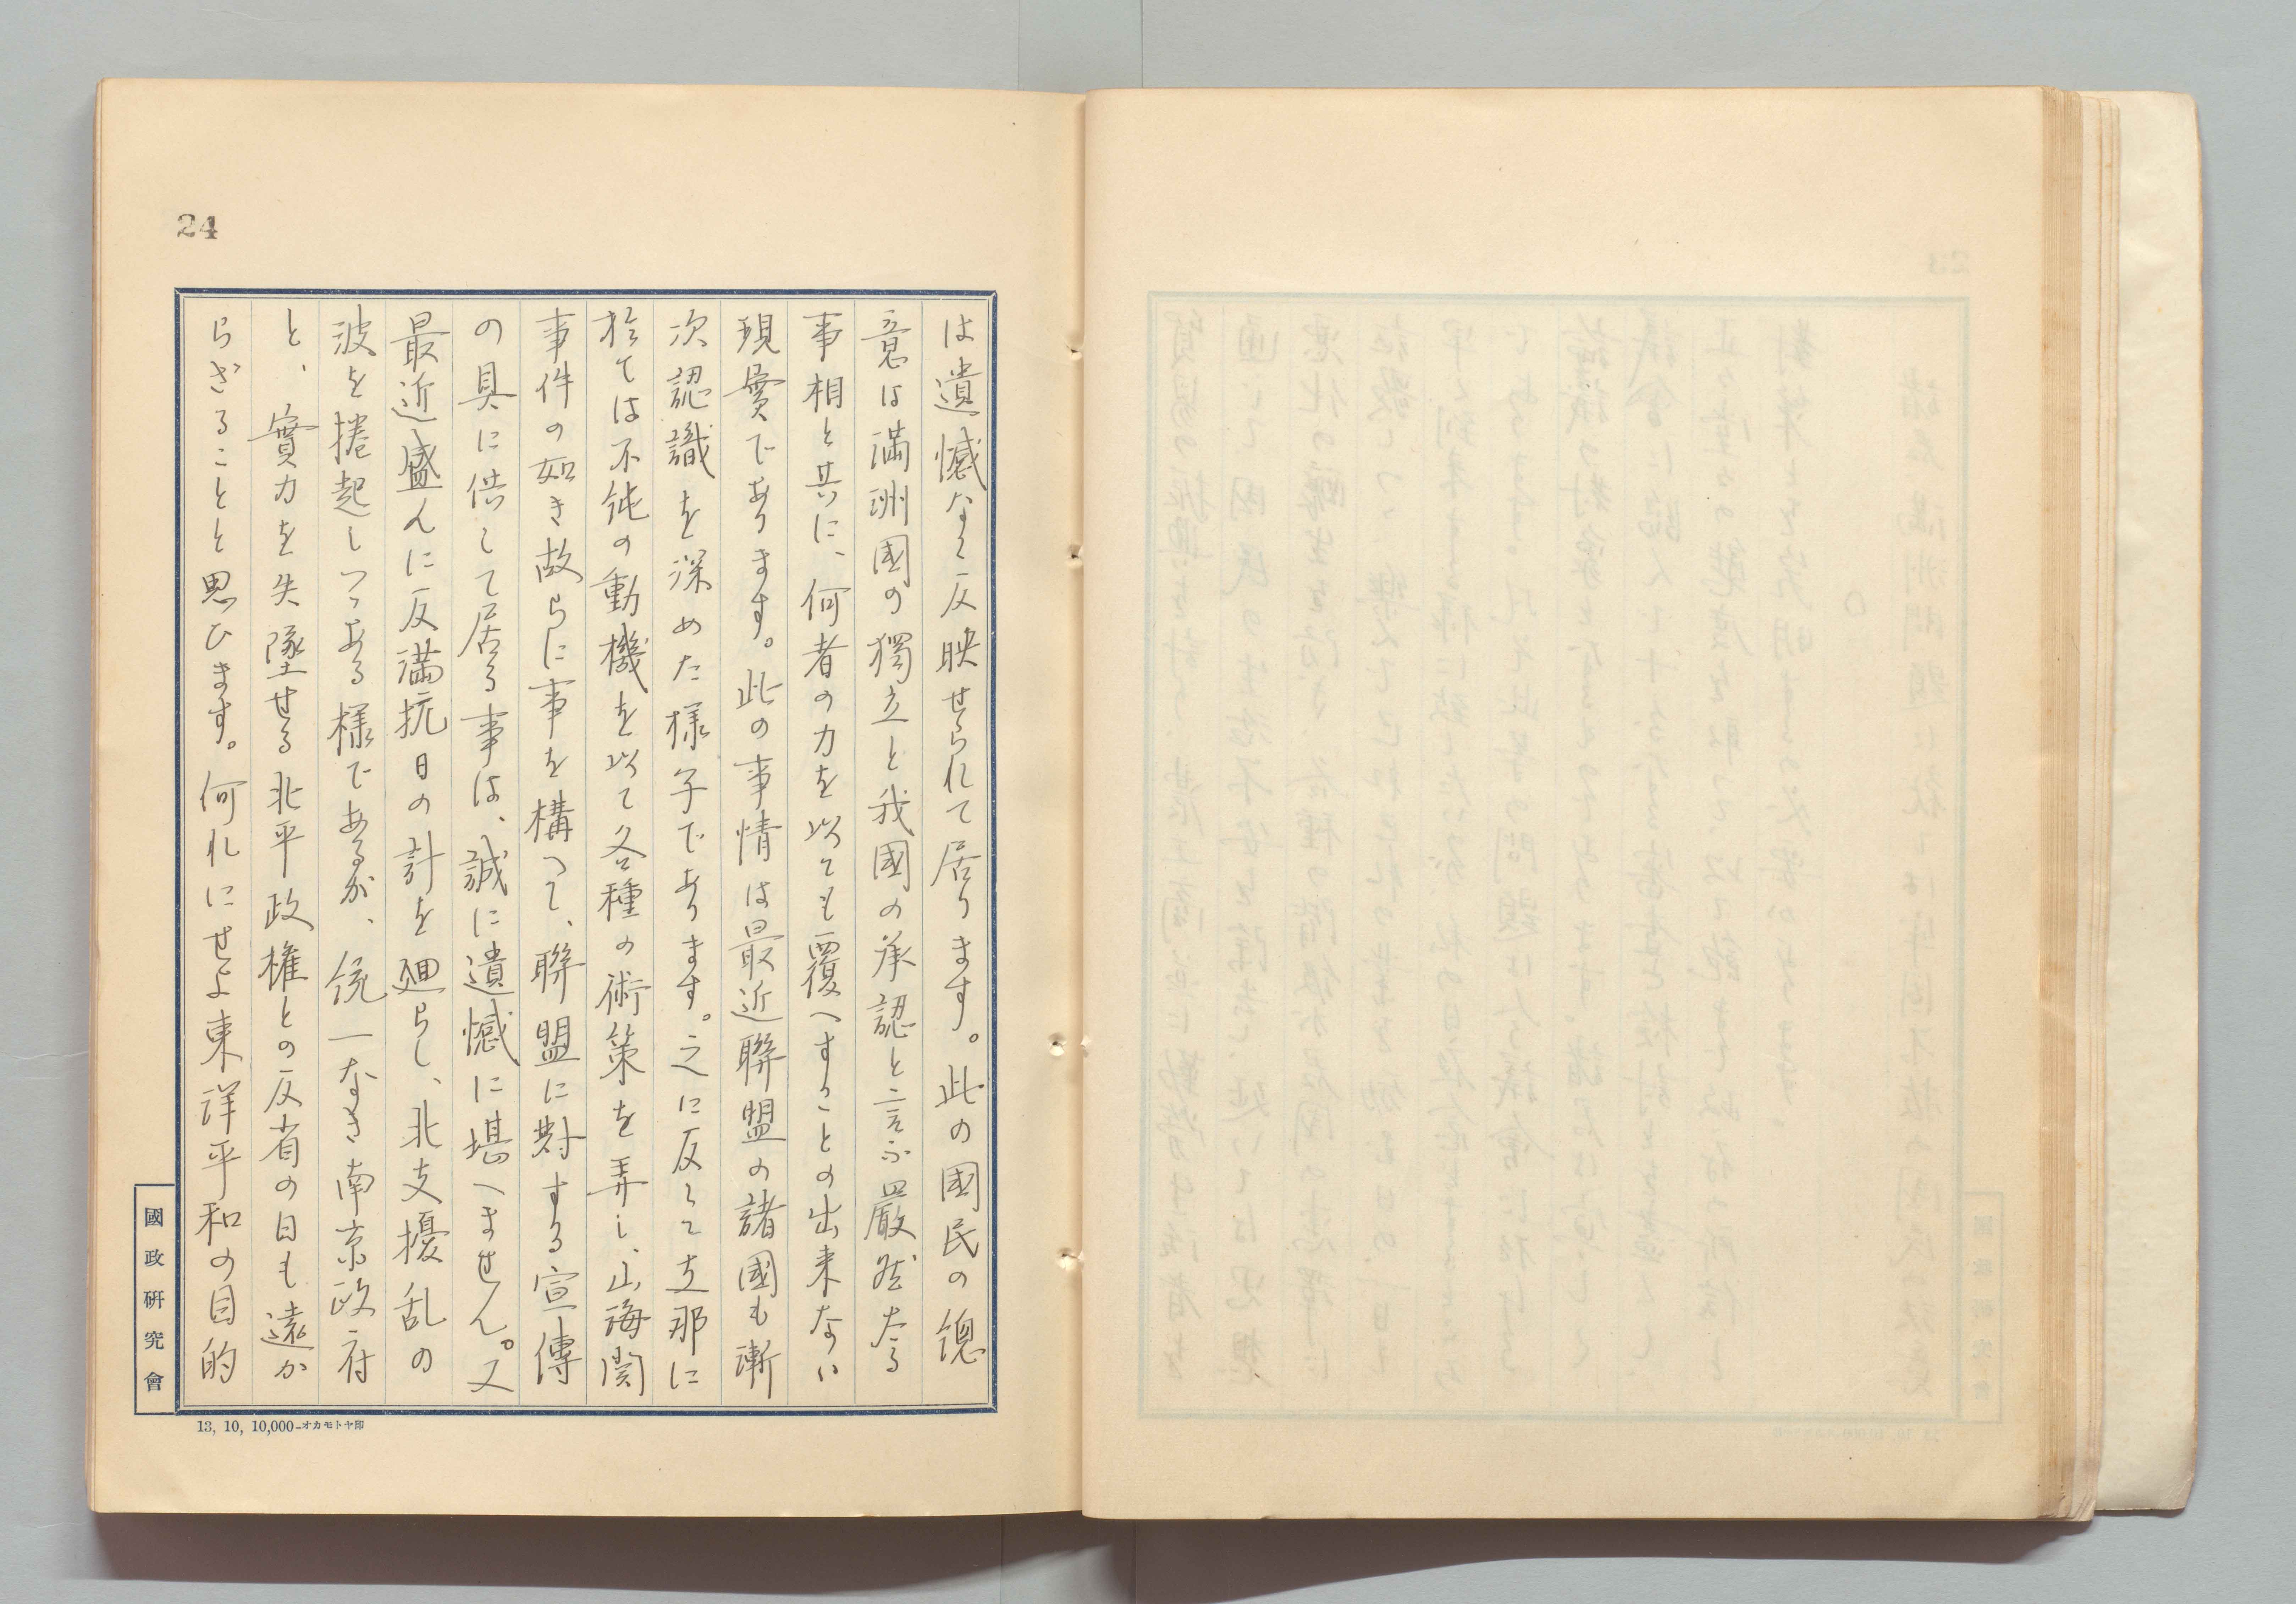 24
は遺憾なく反映せられて居ります。此の國民の總
意は満洲國の獨立と我國の承認と言ふ嚴然たる
事相と共に、何者の力を以ても覆へすことの出来ない
現實であります。此の事情は最近聯盟の諸國も漸
次認識を深めた様子であります。之に反して支那に
於ては不純の動機を以て各種の術策を弄し、山海関
事件の如き故らに事を構へて、聯盟に對する宣傳
の具に供して居る事は、誠に遺憾に堪へません。又
最近盛んに反満抗日の計を廻らし、北支擾乱の
波を捲起しつゝある様であるが、統一なき南京政府
と、實力を失墜せる北平政権との反省の日も遠か
らざることと思ひます。何れにせよ東洋平和の目的
國政研究會
13, 10, 10,000-オカモトヤ印